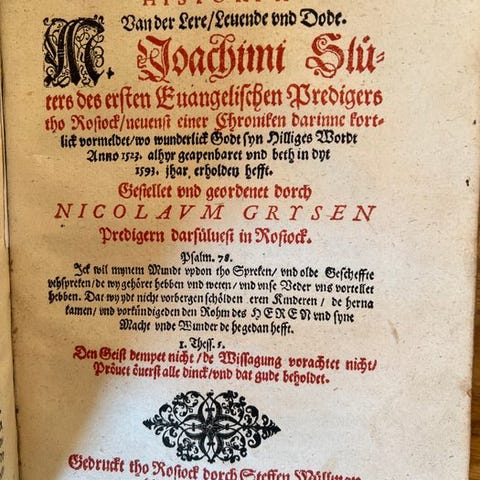 HISTORIA
Van der Lere/Leuende vnd Dode.
M. Joachimi Slü-
ters des ersten Euangelischen Predigers
tho Rostock/neuenst einer Chroniken darinne kort-
lick vormeldet/wo wunderlick Godt syn Hilliges Wordt
Anno 1523. alhyr geapenbaret vnd beth in dyt
1593. jhar erholden hefft.
Gestellet vnd geordenet dorch
NICOLAVM GRYSEN
Predigern darsüluest in Rostock.
Psalm. 78.
Jck wil mynem Mundt vpdon tho Spreken/ vnd olde Geschesste
vthspreken/de wy gehöret hebben vnd weten/ vnd vnse Veder vns vortellet
hebben. Dat wy ydt nicht vorbergen schölden eren Kinderen/ de herna
kamen/ vnd vorkündigeden den Rohm des HEREN vnd syne
Macht vnde Wunder de he gedan hefft.
1. Thess. 5.
Den Geist dempet nicht/de Wissagung vorachtet nicht/
Pröuet öuerst alle dinck/vnd dat gude beholdet.
Gedruckt tho Rostock dorch Steffen Müllman